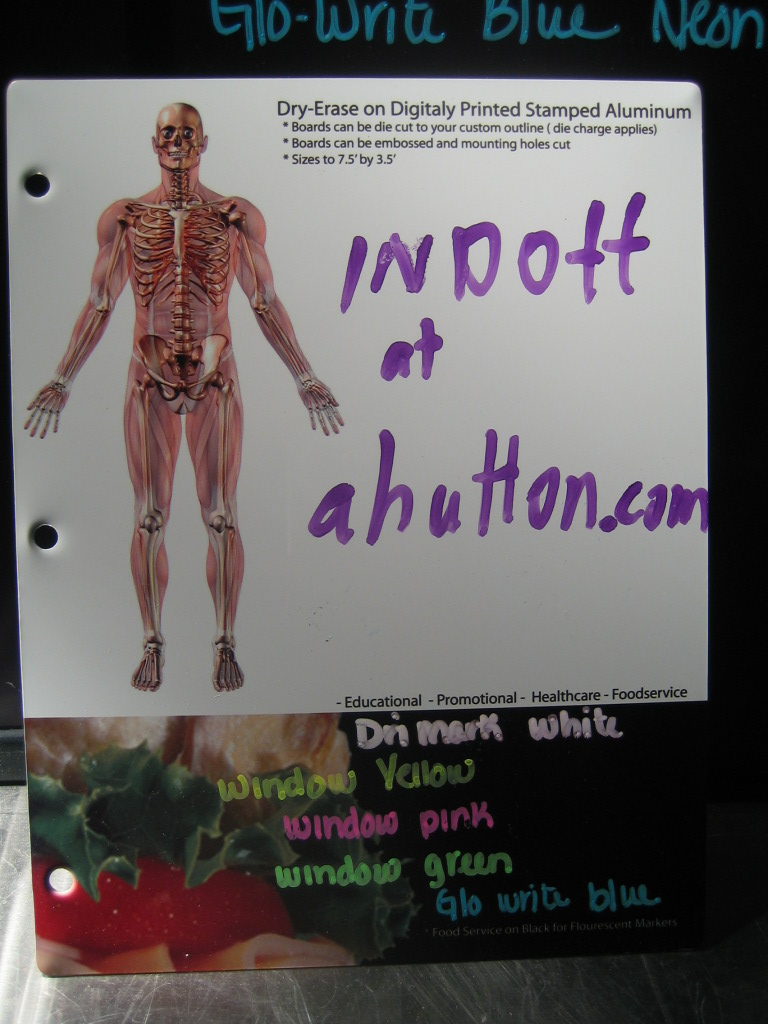 Glo-Write Blue Neon
Dry-Erase on Digitaly Printed Stamped Aluminum
* Boards can be die cut to your custom outline ( die charge applies)
* Boards can be embossed and mounting holes cut
* Sizes to 7.5' by 3.5'
INDOtt
at
ahutton.com
- Educational - Promotional - Healthcare - Foodservice
Dri mark white
window Yellow
window pink
window green
Glo write blue
* Food Service on Black for Flourescent Markers